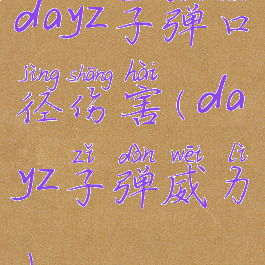 dayz子弹口
jìng shāng hài
径伤害(da
zǐ dàn wēi lì
yz子弹威力
)